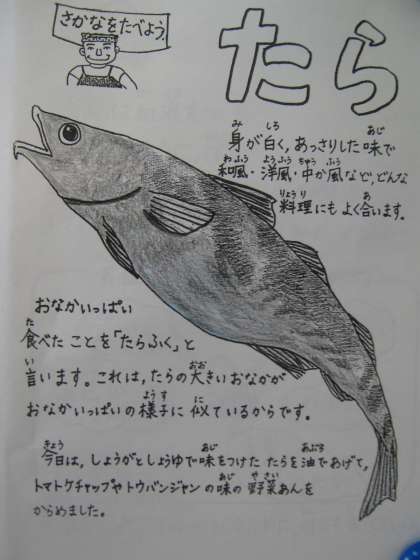 さかなをたべよう。
たら
身が白く、あっさりした味で
和風・洋風・中か風など、どんな
料理にもよく合います。
おなかいっぱい
食べたことを「たらふく」と
言います。これは、たらの大きいおなかが
おなかいっぱいの様子に似ているからです。
今日は、しょうがとしょうゆで味をつけたたらを油であげて、
トマトケチャップやトウバンジャンの味の野菜あんを
からめました。